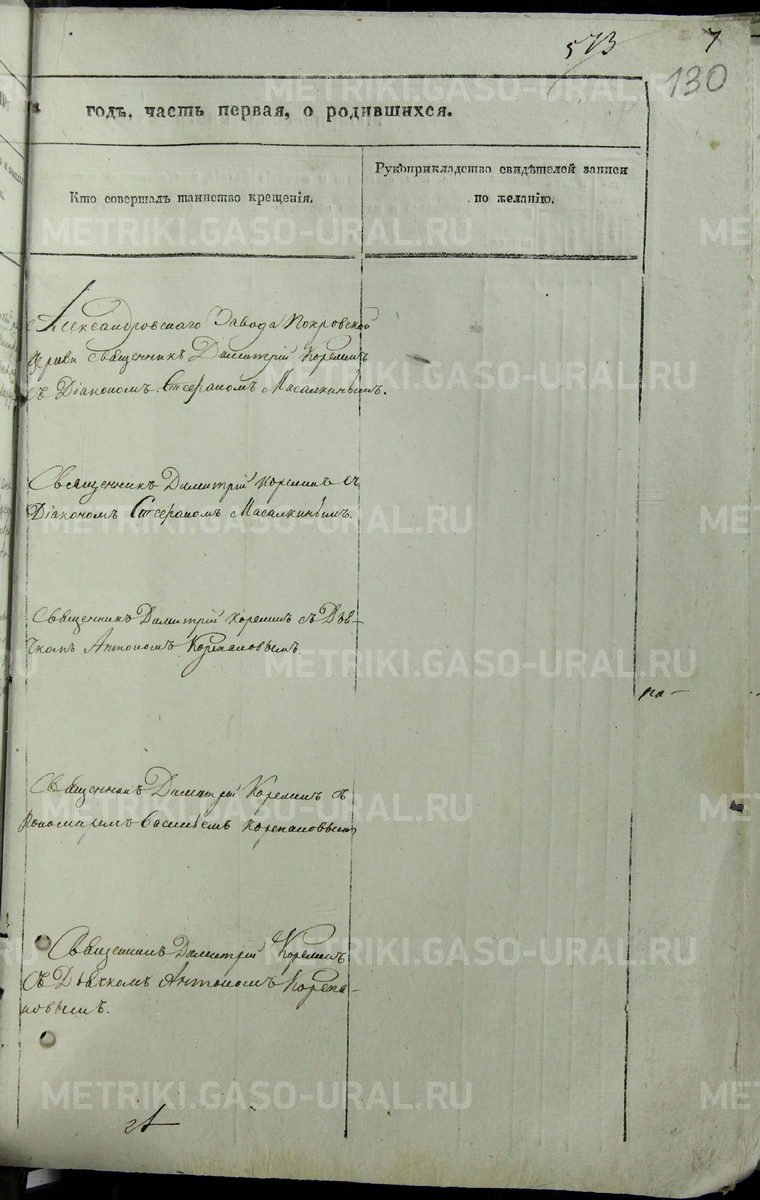 573 7
130
годъ, часть первая, о родившихся.
Кто совершалъ таинство крещенія.
Рукоприкладство свидѣтелей записи
по желанію.
Александровскаго Завода Покровской
Церкви Священникъ Димитрій Корелинъ
съ Діакономъ Стефаномъ Масалкинымъ.
Священникъ Димитрій Корелинъ съ
Діакономъ Стефаномъ Масалкинымъ.
Священникъ Димитрій Корелинъ съ Дья-
чкомъ Антономъ Корепановымъ.
Священникъ Димитрій Корелинъ съ
Пономаремъ Василіемъ Корепановымъ
Священникъ Димитрій Корелинъ
съ Дьячкомъ Антономъ Корепа-
новымъ.
METRIKI.GASO-URAL.RU